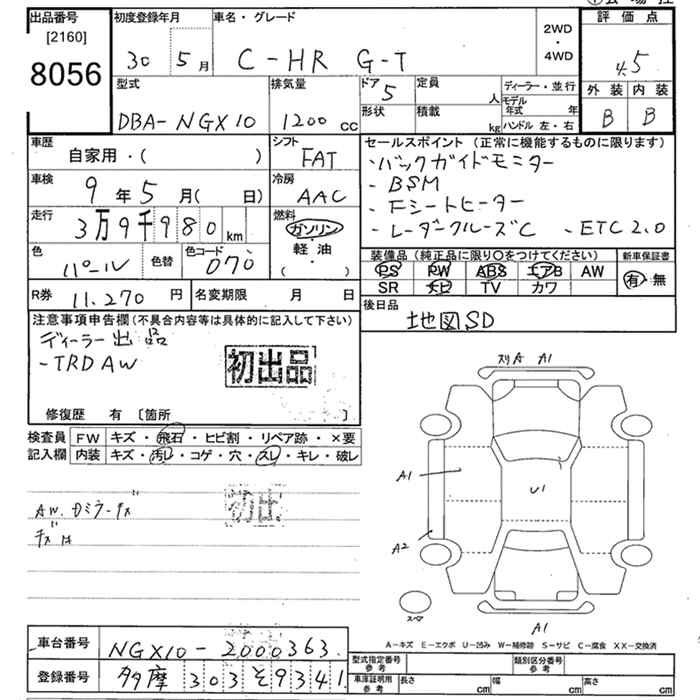 出品番号 初度登録年月 車名・グレード 評価点
[2160] 30 5月 C-HR G-T 2WD・4WD 4.5
8056
型式 排気量 ドア 5 定員 人 ディーラー・並行 外装 内装
DBA-NGX10 1200 cc 形状 積載 kg モデル年式 年 ハンドル 左・右 B B
車歴 シフト セールスポイント (正常に機能するものに限ります)
自家用・( ) FAT ・バックガイドモニター
車検 冷房 ・BSM
9年5月( 日) AAC ・Fシートヒーター
走行 燃料 ・レーダークルーズC 、ETC2.0
3万9千980km ガソリン
軽油
( ・ )
色 色替 色コード 装備品 (純正品に限り○をつけてください) 新車保証書
パール 070 PS PW ABS エアB AW 有・無
SR ナビ TV カワ
R券 11,270円 名変期限 月 日 後日品
地図SD
注意事項申告欄 (不具合内容等は具体的に記入して下さい)
ディーラー出品
-TRD AW 初出品
修復歴 有 〔箇所 〕
検査員 FW キズ・飛石・ヒビ割・リペア跡・×要
記入欄 内装 キズ・汚レ・コゲ・穴・スレ・キレ・破レ
初出
スリA A1
A1
U1
A2
A1
スペア
A-キズ E-エクボ U-凹み W-補修跡 S-サビ C-腐食 XX-交換済
車台番号 NGX10-2000363
登録番号 多摩 303 そ 9341
型式指定番号 参考 類別区分番号 参考
車庫証明用 参考 長さ cm 幅 cm 高さ cm